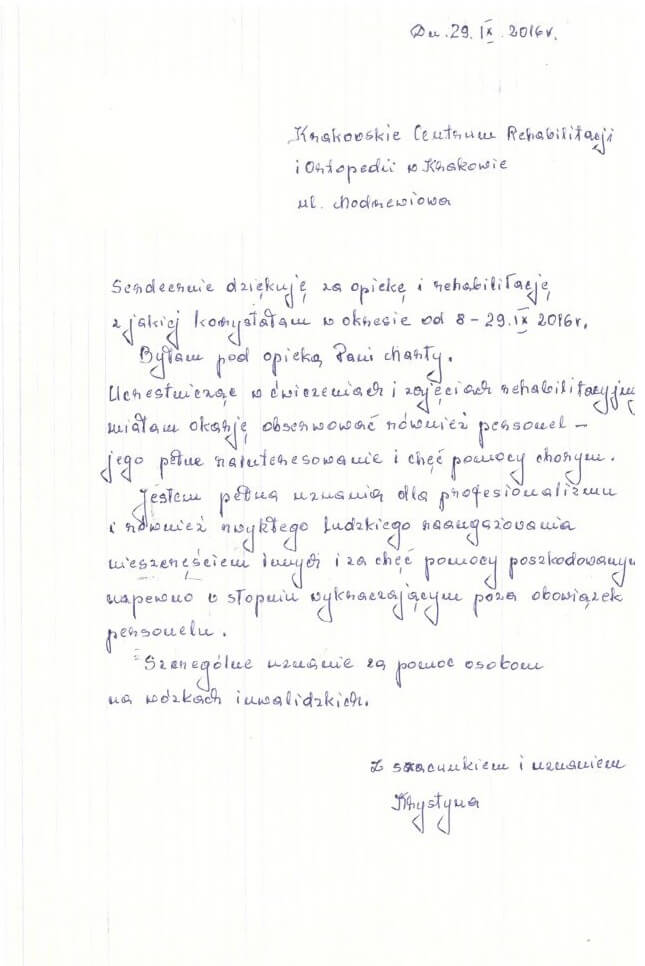 Dn. 29. IX. 2016r.
Krakowskie Centrum Rehabilitacji
i Ortopedii w Krakowie
ul. Modrzewiowa
Serdecznie dziękuję za opiekę i rehabilitację,
z jakiej korzystałam w okresie od 8 - 29. IX 2016r.
Byłam pod opieką Pani Marty.
Uczestnicząc w ćwiczeniach i zajęciach rehabilitacyjny
miałam okazję obserwować również personel -
jego pełne zainteresowanie i chęć pomocy chorym.
Jestem pełna uznania dla profesionalizmu
i również zwykłego ludzkiego zaangażowania
nieszczęściem innych i za chęć pomocy poszkodowanym
napewno w stopniu wykraczającym poza obowiązek
personelu.
Szczególne uznanie za pomoc osobom
na wózkach inwalidzkich.
Z szacunkiem i uznaniem
Krystyna